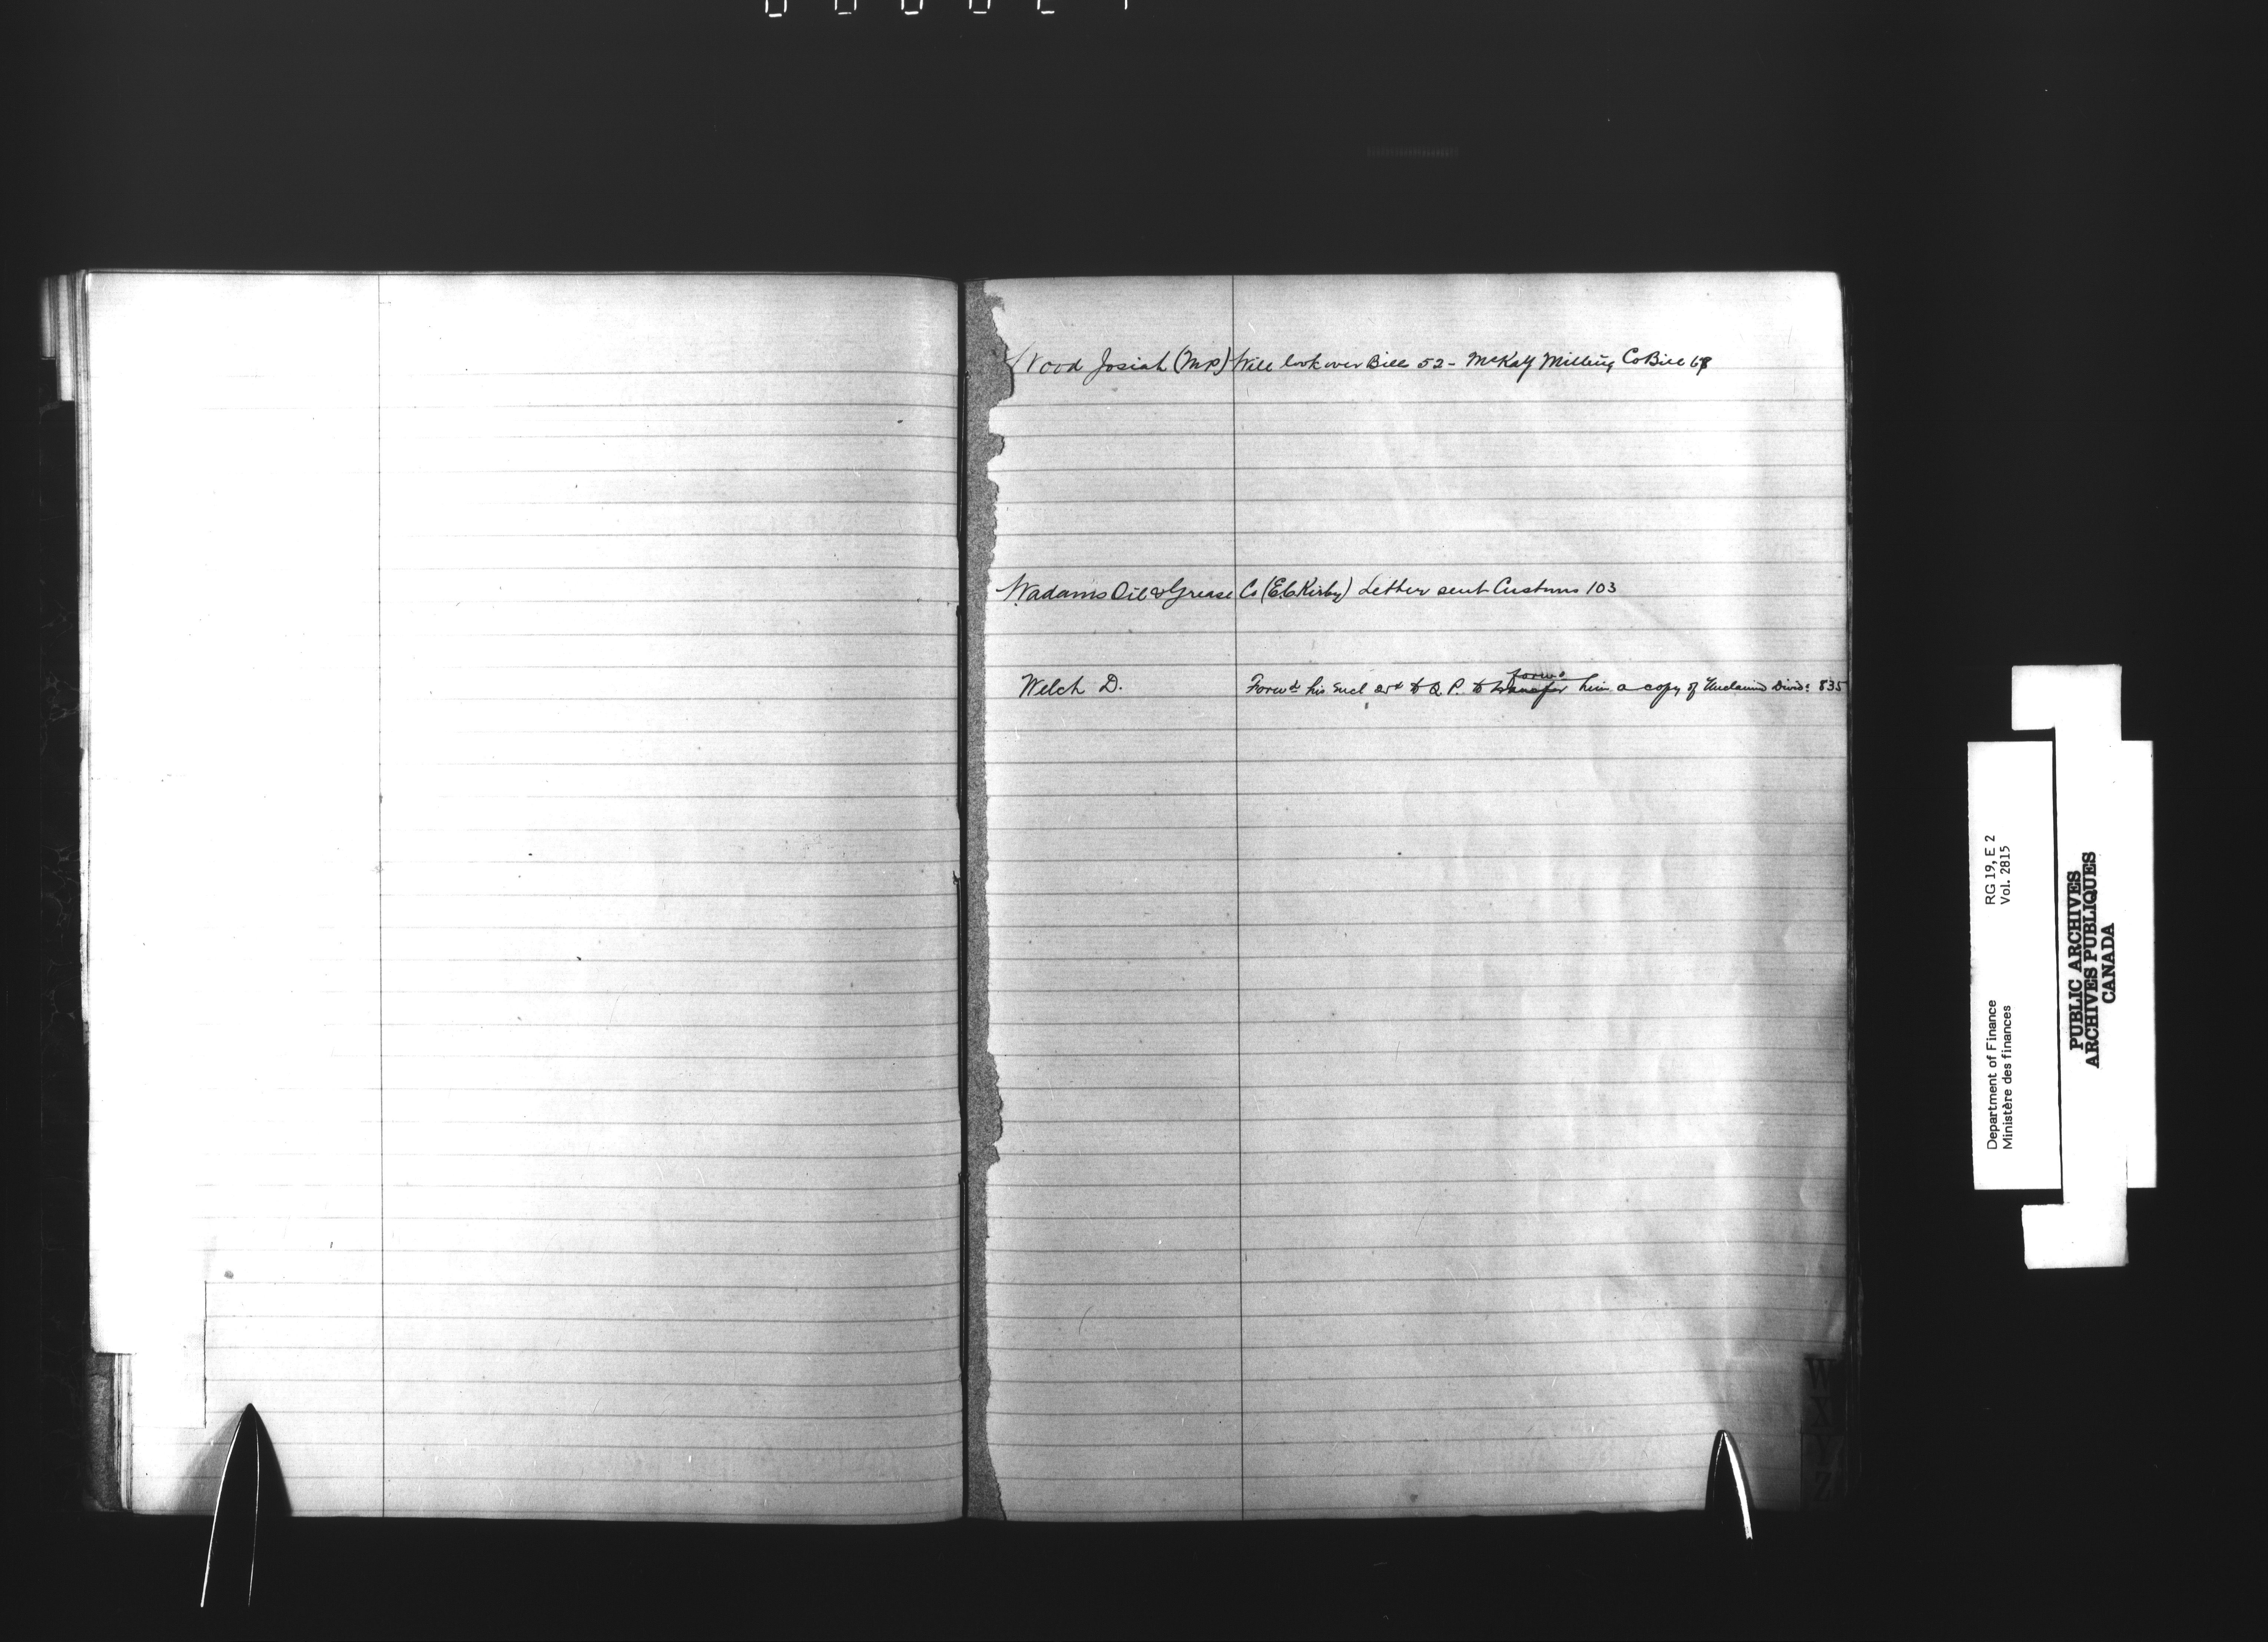 Wood Josiah (MP) Will look over Bill 52 - McKay Milling Co Bill 68
Wadams Oil & Grease Co (E.C. Kirby) Letter sent Customs 103
forwd
Welch D. Forwd his encl to Q. P. to transfer him a copy of Unclaimed Divds 835
W
X
Y
Z
Department of Finance RG 19, E 2
Ministère des finances Vol. 2815
PUBLIC ARCHIVES
ARCHIVES PUBLIQUES
CANADA